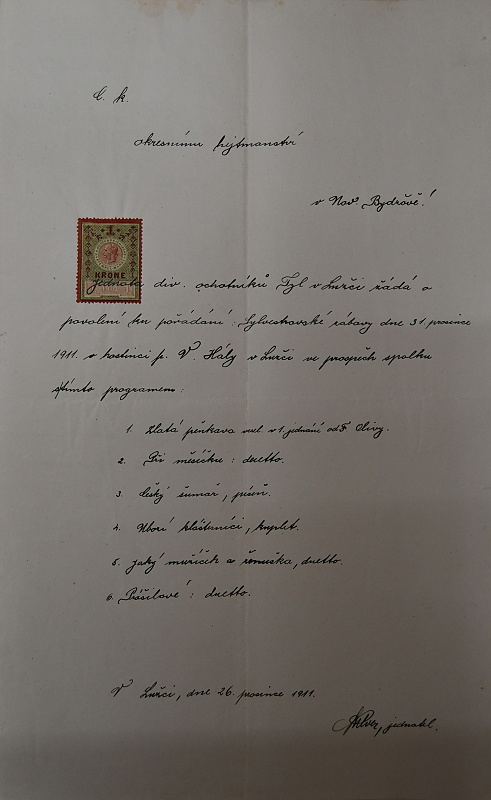 C. k.
okresnímu hejtmanství
v Nov. Bydžově!
1
KRONE
Jednota div. ochotníků Tyl v Lužci žádá o
povolení ku pořádání Sylvestrovské zábavy dne 31. prosince
1911. v hostinci p. V. Hály v Lužci ve prospěch spolku
s tímto programem:
1. Zlatá pěnkava vesel. v 1. jednání od F.
2. Při měsíčku: duetto.
3. Český šumař, píseň.
4. Ubozí kuplet.
5. Jaký mužíček a ženuška, duetto.
6. Prášilové: duetto.
V Lužci, dne 26. prosince 1911.
jednatel.